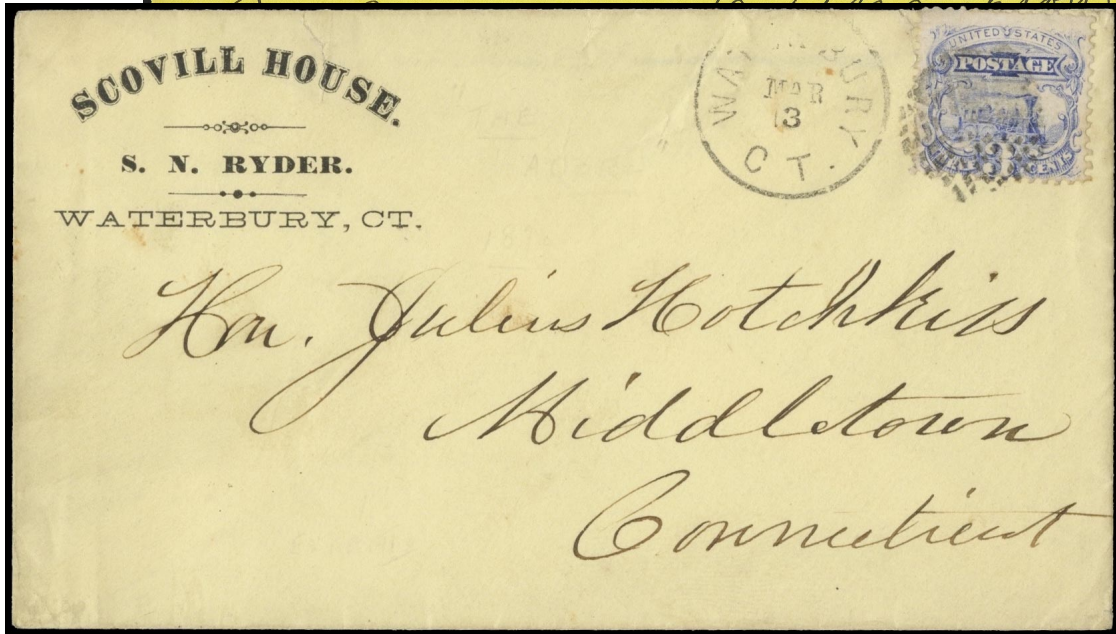 SCOVILL HOUSE.
S. N. RYDER.
WATERBURY, CT.
WATERBURY
MAR
13
CT.
UNITED STATES
POSTAGE
CENTS
Hon. Julius Hotchkiss
Middletown
Connecticut